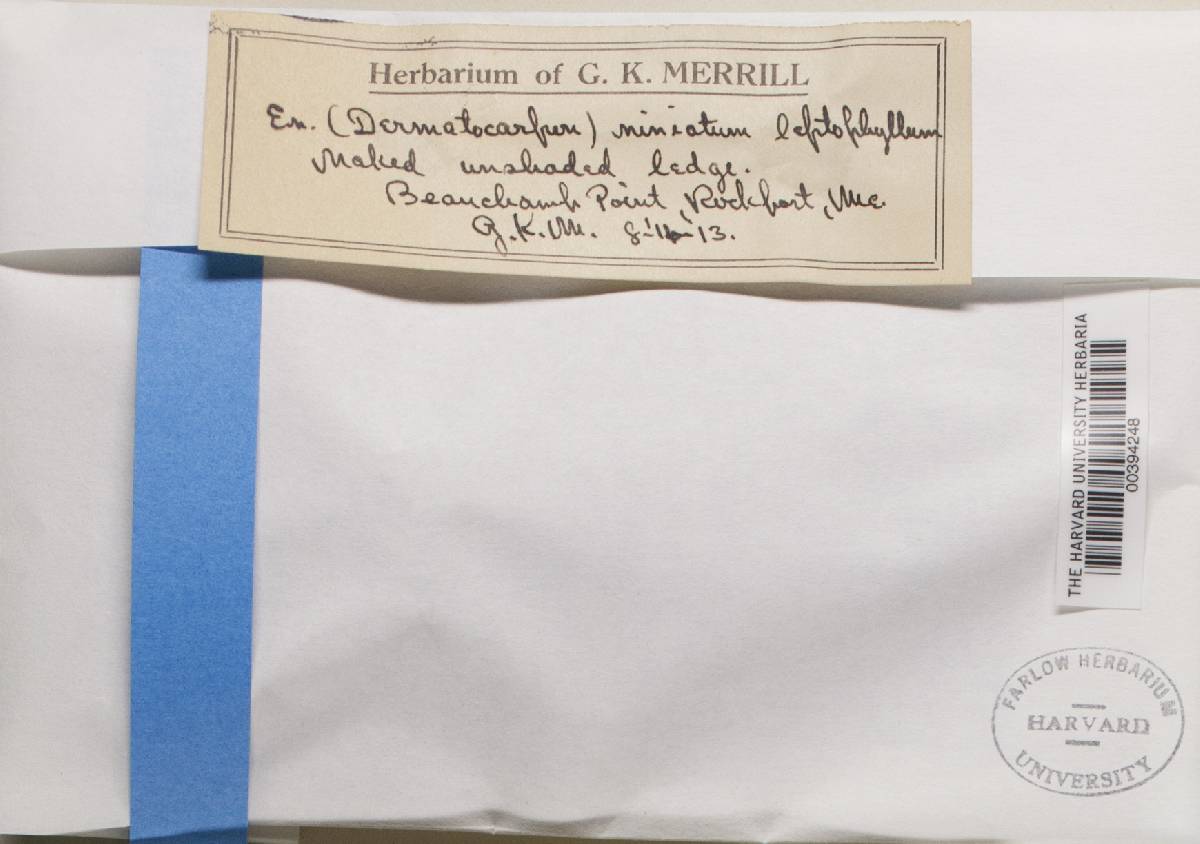 Herbarium of G. K. MERRILL
En. (Dermatocarpon) miniatum leptophyllum
Naked unshaded ledge.
Beauchamp Point, Rockport, Me.
G.K.M. 8-
13.
THE HARVARD UNIVERSITY HERBARIA
00394248
FARLOW HERBARIUM
HARVARD
UNIVERSITY